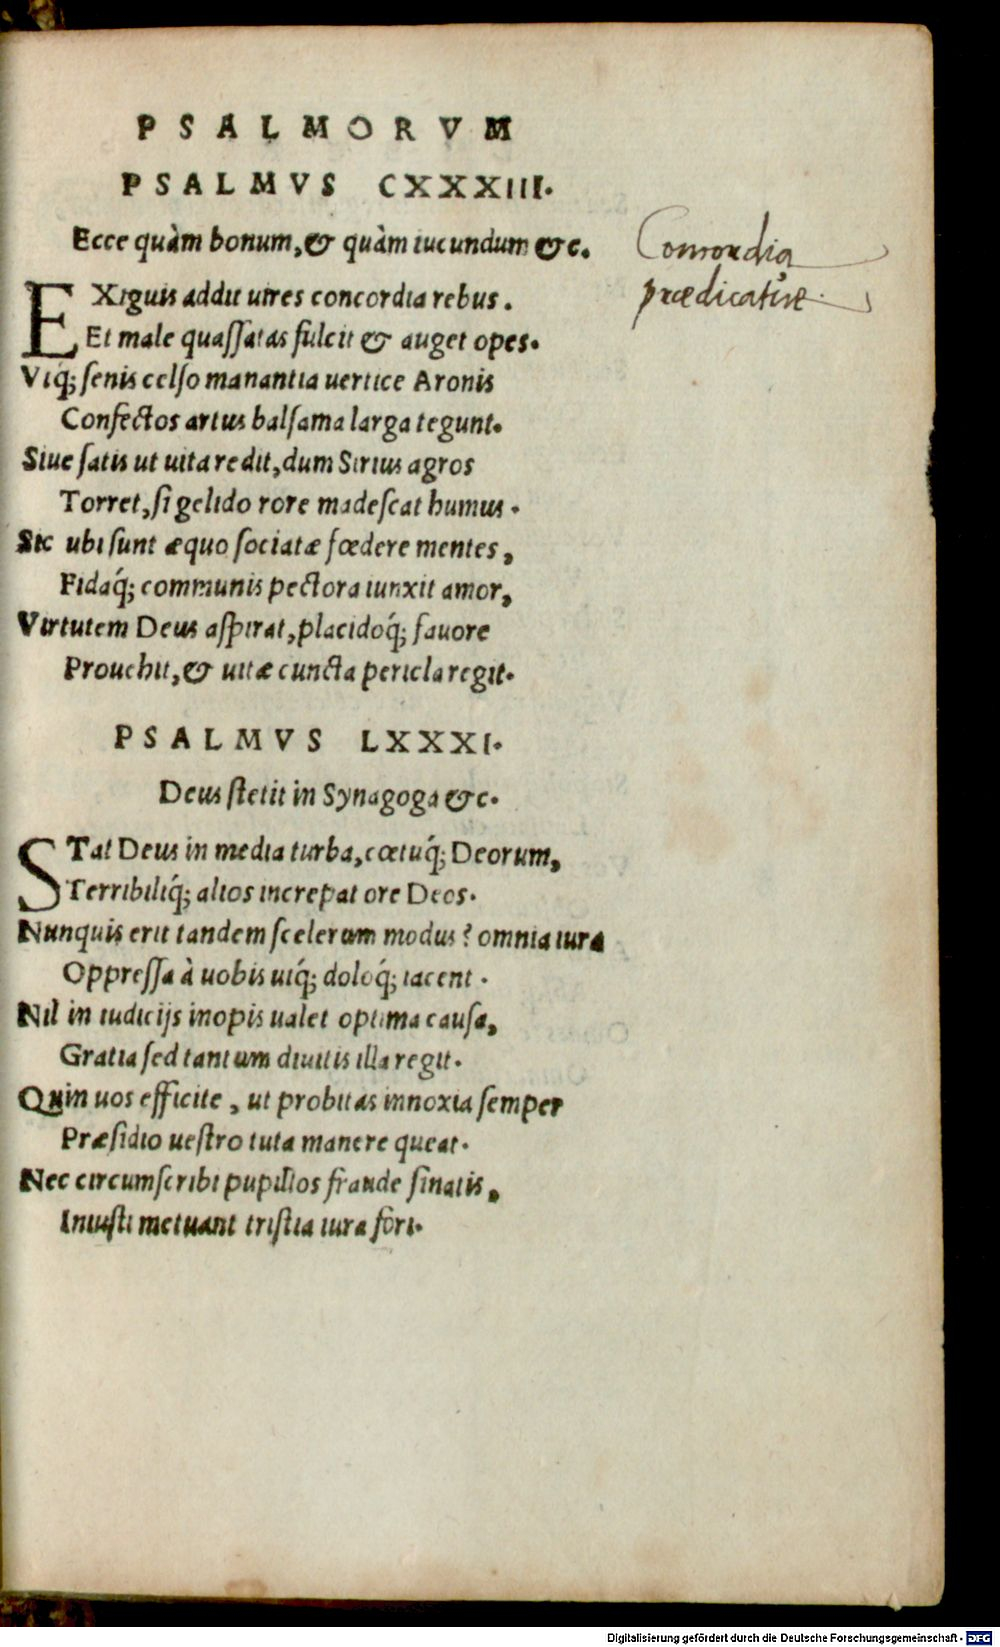 PSALMORVM
PSALMVS CXXXIII.
Ecce quàm bonum, & quàm iucundum &c.
EXiguis addit uires concordia rebus.
Et male quaſſatas fulcit & auget opes.
Vtq́; ſenis celſo manantia uertice Aronis
Confectos artus balſama larga tegunt.
Siue ſatis ut uita redit, dum Sirius agros
Torret, ſi gelido rore madeſcat humus.
Sic ubi ſunt æquo ſociatæ fœdere mentes,
Fidaq́; communis pectora iunxit amor,
Virtutem Deus aſpirat, placidoq́; fauore
Prouehit, & uitæ cuncta pericla regit.
PSALMVS LXXXI.
Deus ſtetit in Synagoga &c.
STat Deus in media turba, cœtuq́; Deorum,
Terribiliq́; alios increpat ore Deos.
Nunquis erit tandem ſcelerum modus? omnia iura
Oppreſſa à uobis uiq́; doloq́; iacent.
Nil in iudicijs inopis ualet optima cauſa,
Gratia ſed tantum diuitis illa regit.
Quin uos efficite, ut probitas innoxia ſemper
Præſidio ueſtro tuta manere queat.
Nec circumſcribi pupillos fraude ſinatis,
Iniuſti metuant triſtia iura fori.
Concordia
prædicatur
Digitalisierung gefördert durch die Deutsche Forschungsgemeinschaft - DFG